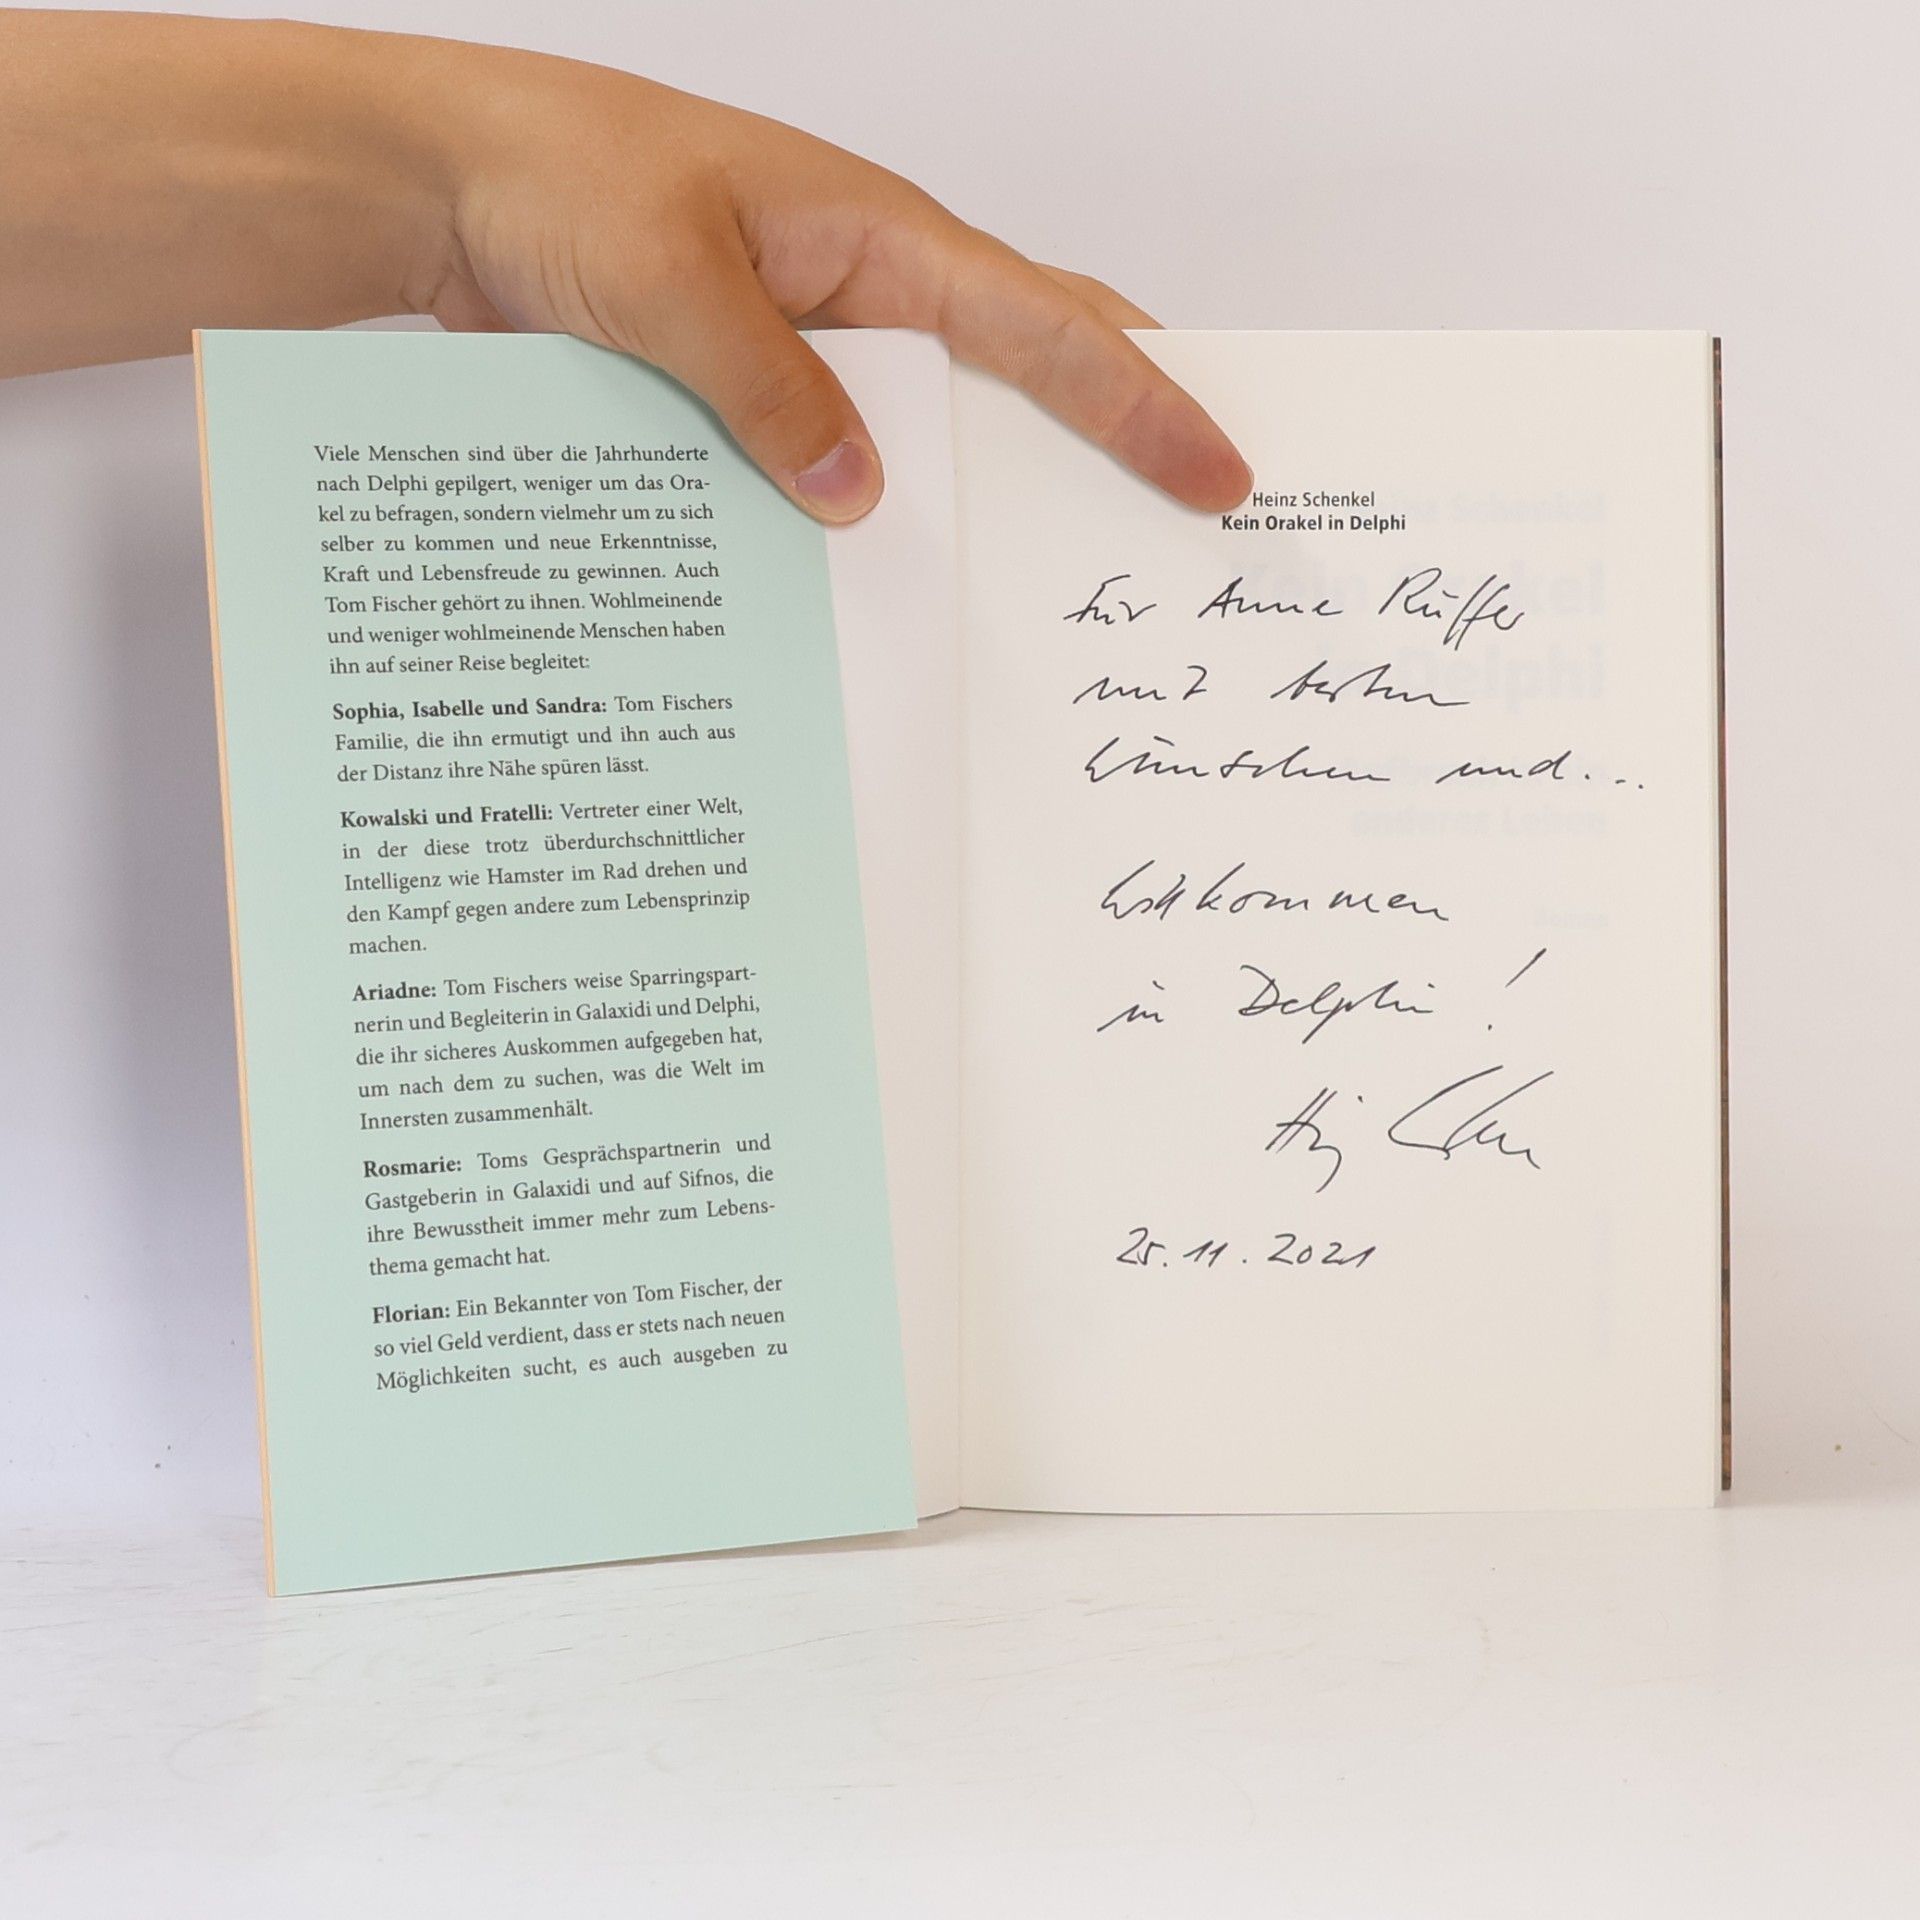 Viele Menschen sind über die Jahrhunderte
nach Delphi gepilgert, weniger um das Ora-
kel zu befragen, sondern vielmehr um zu sich
selber zu kommen und neue Erkenntnisse,
Kraft und Lebensfreude zu gewinnen. Auch
Tom Fischer gehört zu ihnen. Wohlmeinende
und weniger wohlmeinende Menschen haben
ihn auf seiner Reise begleitet:
Sophia, Isabelle und Sandra: Tom Fischers
Familie, die ihn ermutigt und ihn auch aus
der Distanz ihre Nähe spüren lässt.
Kowalski und Fratelli: Vertreter einer Welt,
in der diese trotz überdurchschnittlicher
Intelligenz wie Hamster im Rad drehen und
den Kampf gegen andere zum Lebensprinzip
machen.
Ariadne: Tom Fischers weise Sparringspart-
nerin und Begleiterin in Galaxidi und Delphi,
die ihr sicheres Auskommen aufgegeben hat,
um nach dem zu suchen, was die Welt im
Innersten zusammenhält.
Rosmarie: Toms Gesprächspartnerin und
Gastgeberin in Galaxidi und auf Sifnos, die
ihre Bewusstheit immer mehr zum Lebens-
thema gemacht hat.
Florian: Ein Bekannter von Tom Fischer, der
so viel Geld verdient, dass er stets nach neuen
Möglichkeiten sucht, es auch ausgeben zu
Heinz Schenkel
Kein Orakel in Delphi
Für Anne Rüffer
mit besten
Wünschen und...
Willkommen
in Delphi!
25.11.2021